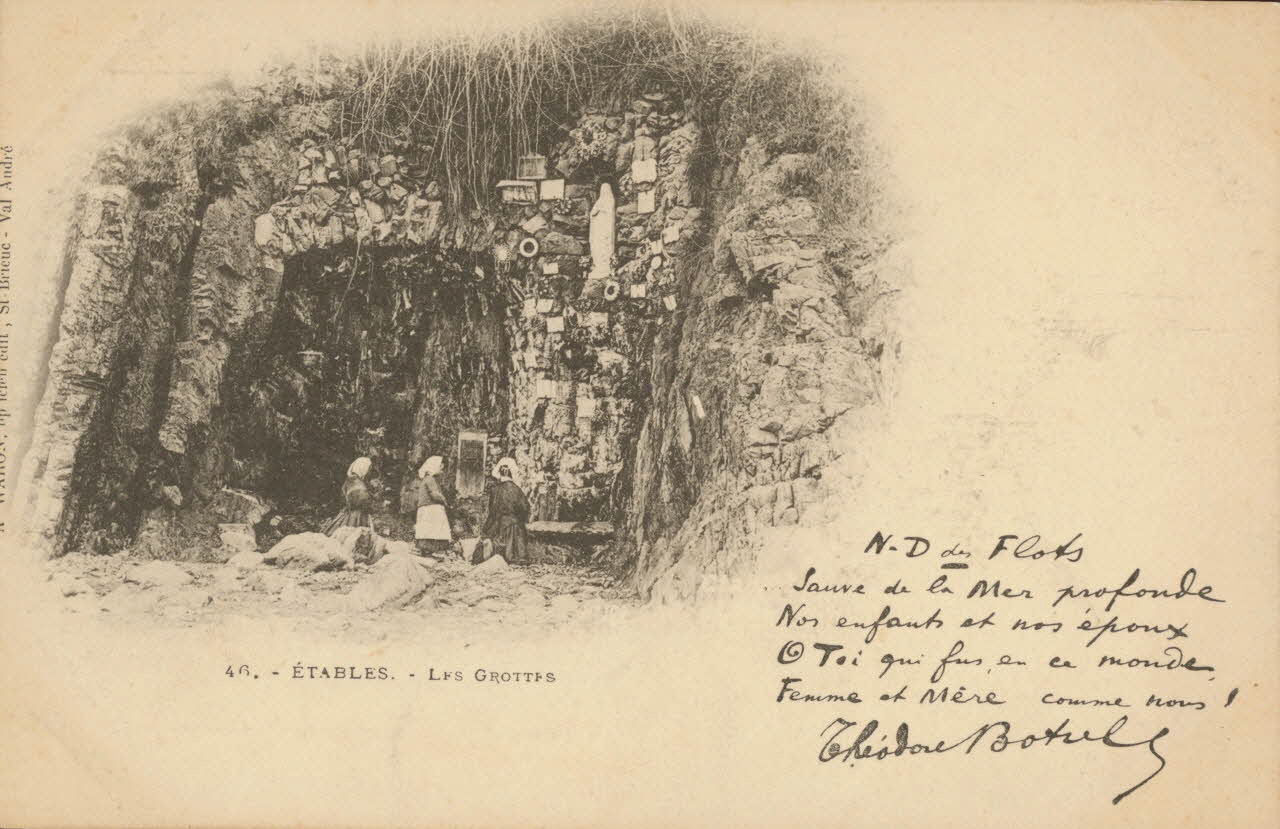 A WARON, St Brieuc - Val André
46. - ÉTABLES. - LES GROTTES
N-D des Flots
Sauve de la Mer profonde
Nos enfants et nos époux
O Toi qui fus, en ce monde,
Femme et Mère comme nous !
Théodore Botrel